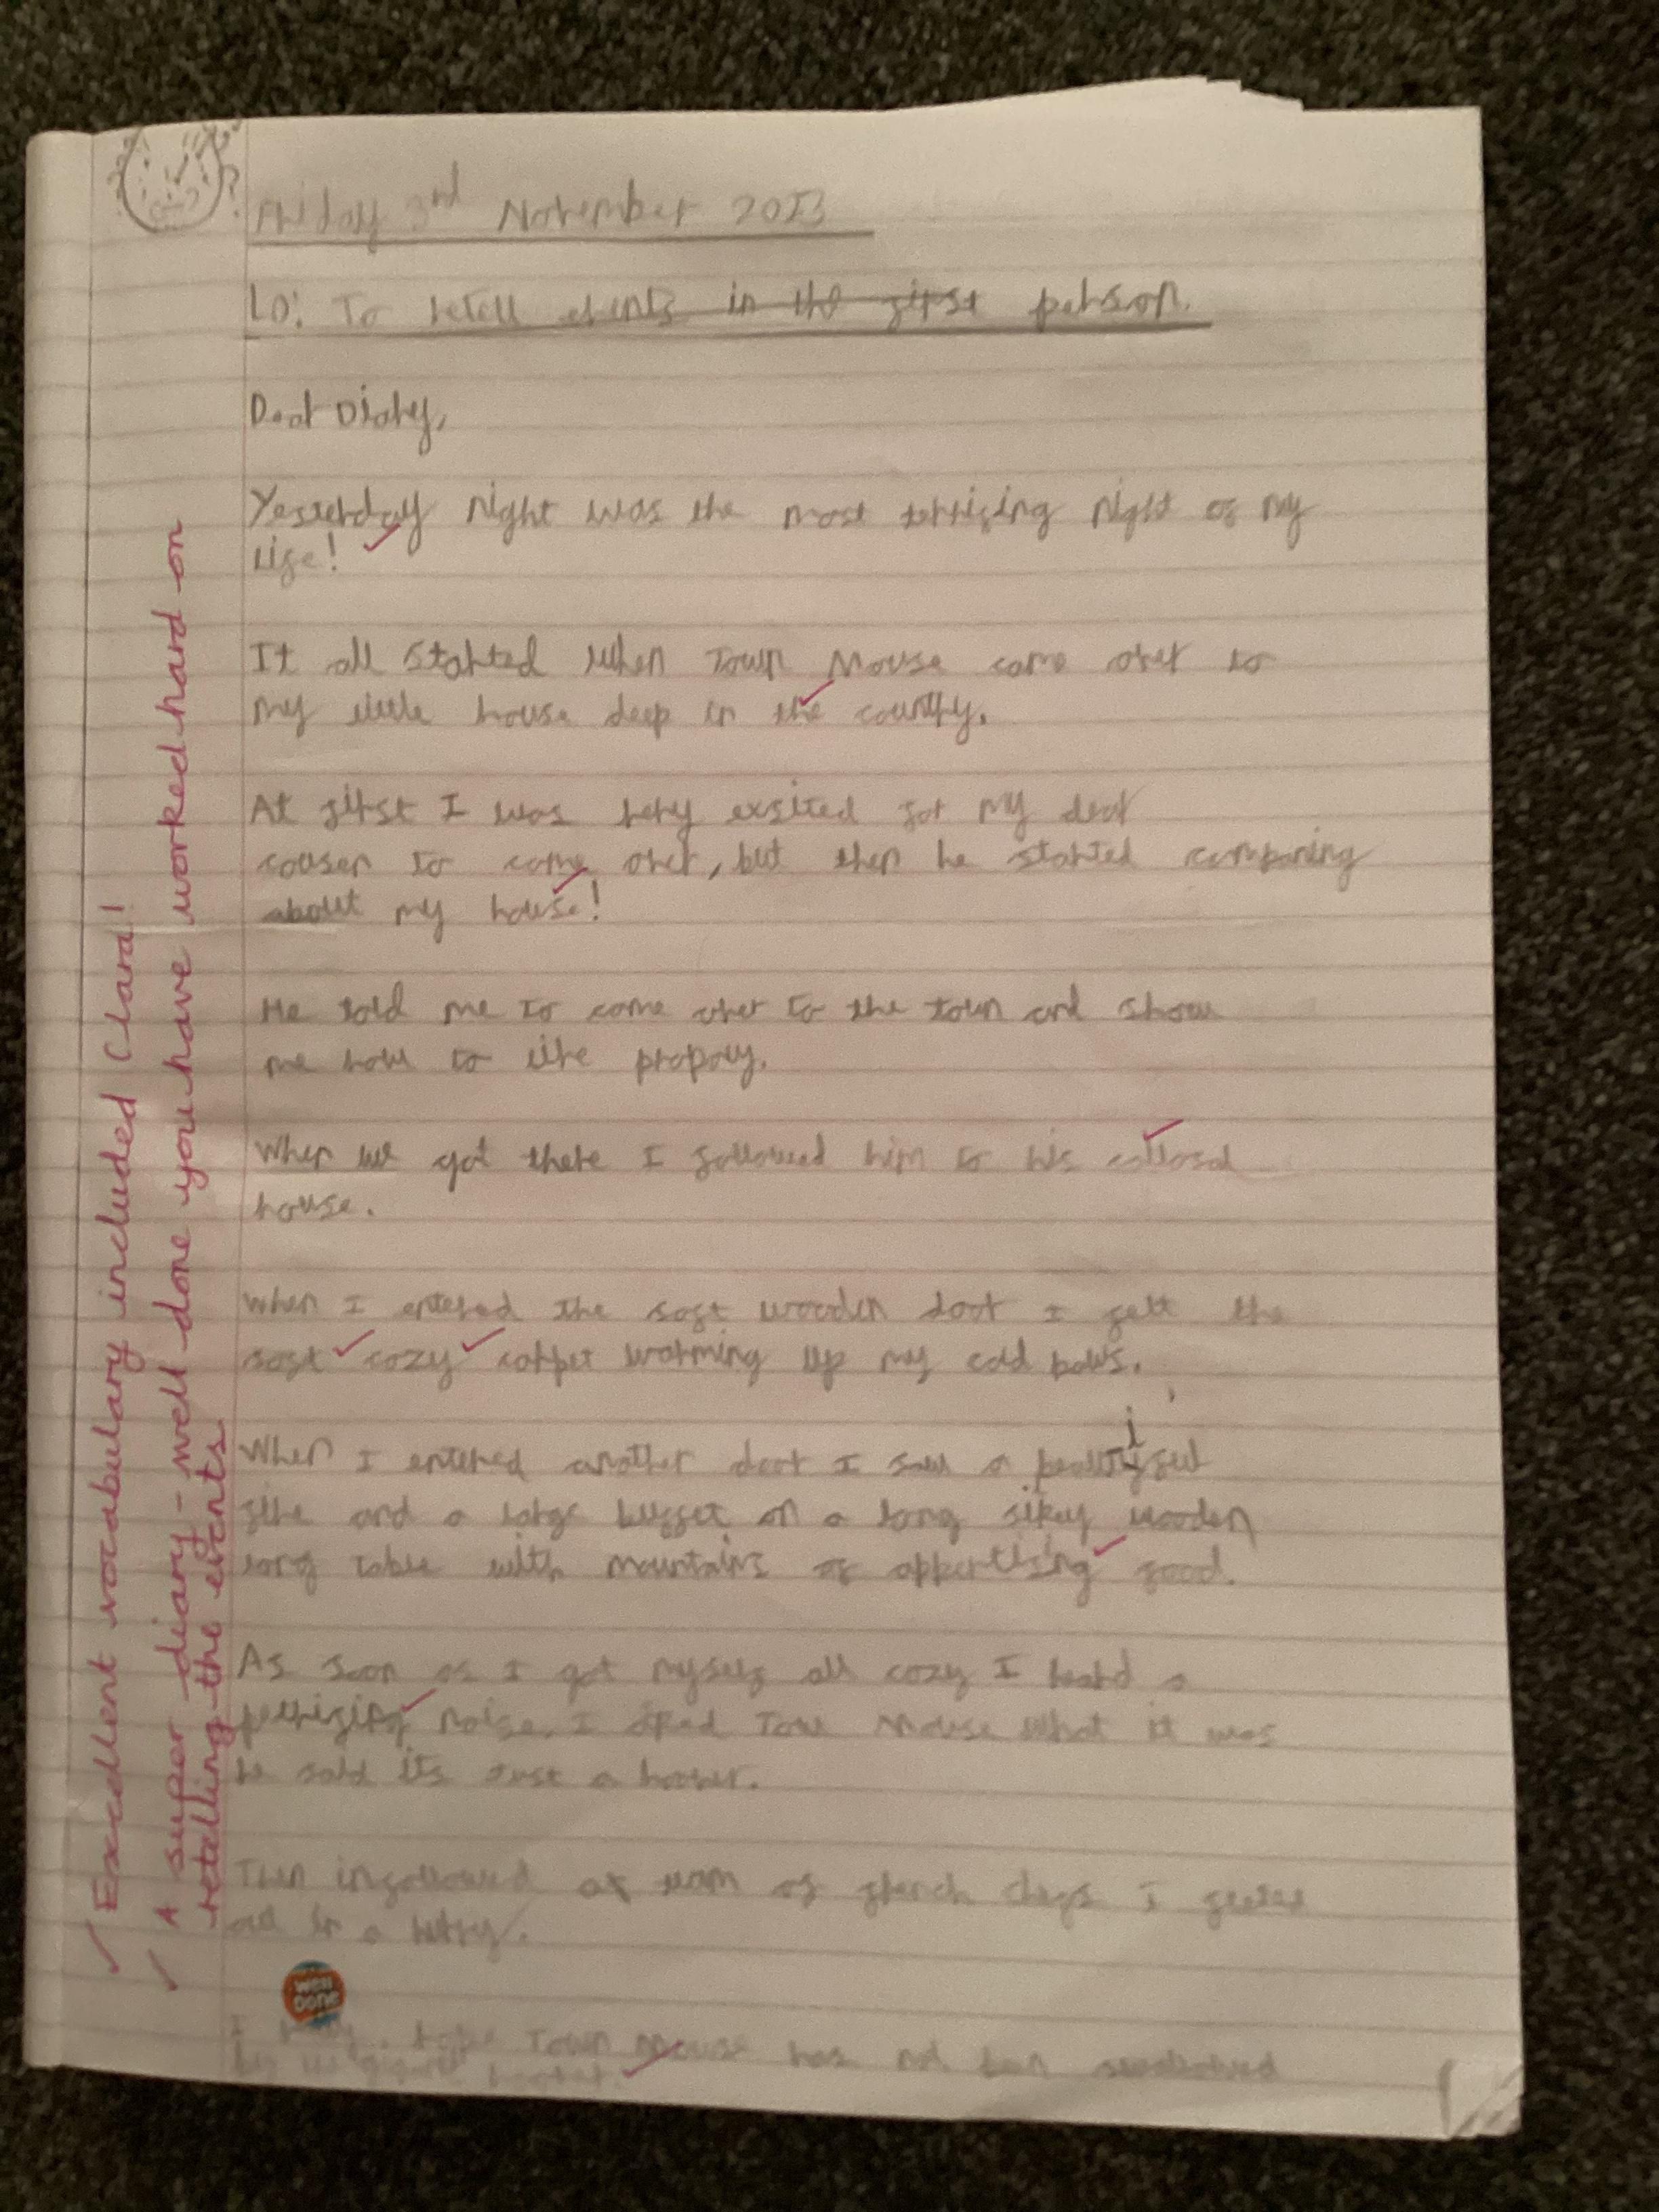 Friday 3rd November 2023
LO: To retell events in the first person.
Dear Diary,
Yesterday night was the most terrifing night of my
life!
It all started when Town Mouse came over to
my little house deep in the country.
At first I was very exsited for my dear
cousen to come over, but then he started complaning
about my house!
He told me to come over to the town and show
me how to live propoly.
When we got there I followed him to his collosal
house.
When I entered the soft wooden door I felt the
soft cozy carpet warming up my cold paws.
When I entered another door I saw a beautiful
fire and a large buffet on a long wooden
long table with mountains of food.
As soon as I got myself all cozy I heard a
terrifing noise. I Mouse what it was
he said its just a
Then infollowed of I
out in a
Town Mouse has not
WELL DONE
✓ Excellent vocabulary included Clara!
✓ A super diary - well done you have worked hard on
retelling the events